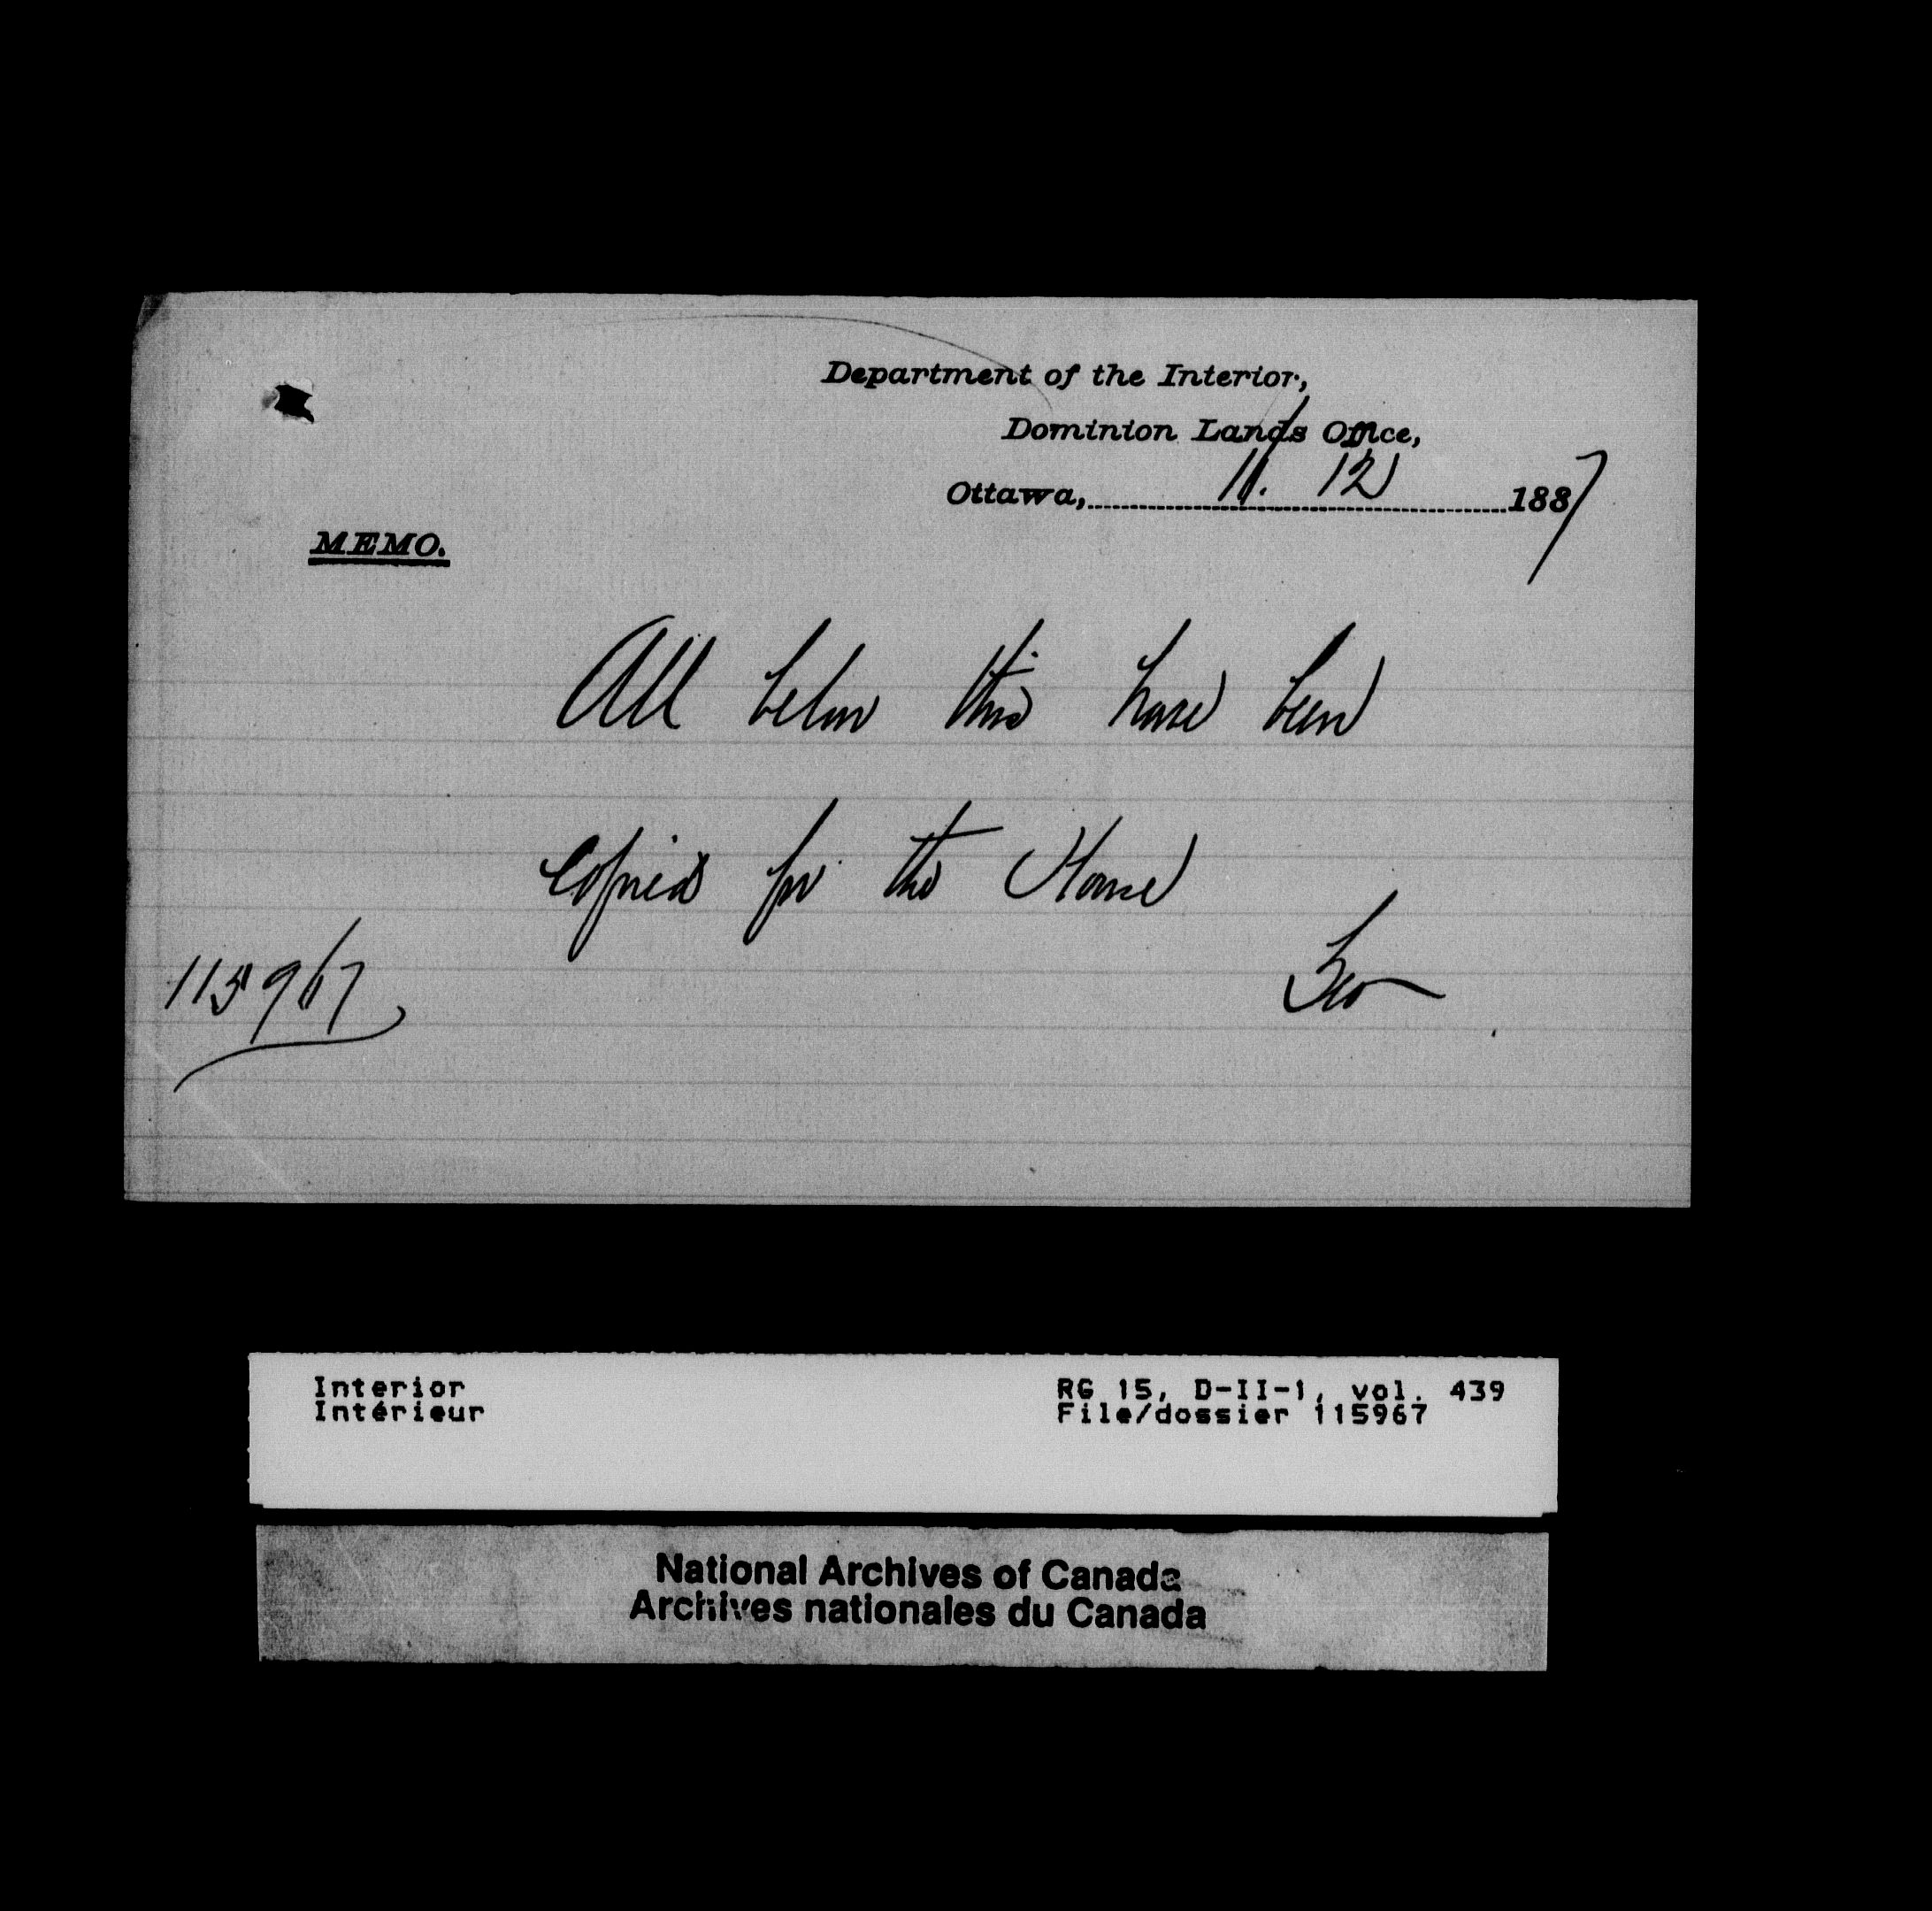 Department of the Interior,
Dominion Lands Office,
Ottawa, 11. 12 1887
MEMO.
All below this have been
copied for the House
115967
Interior
Intérieur
RG 15, D-II-1, vol. 439
File/dossier 115967
National Archives of Canada
Archives nationales du Canada